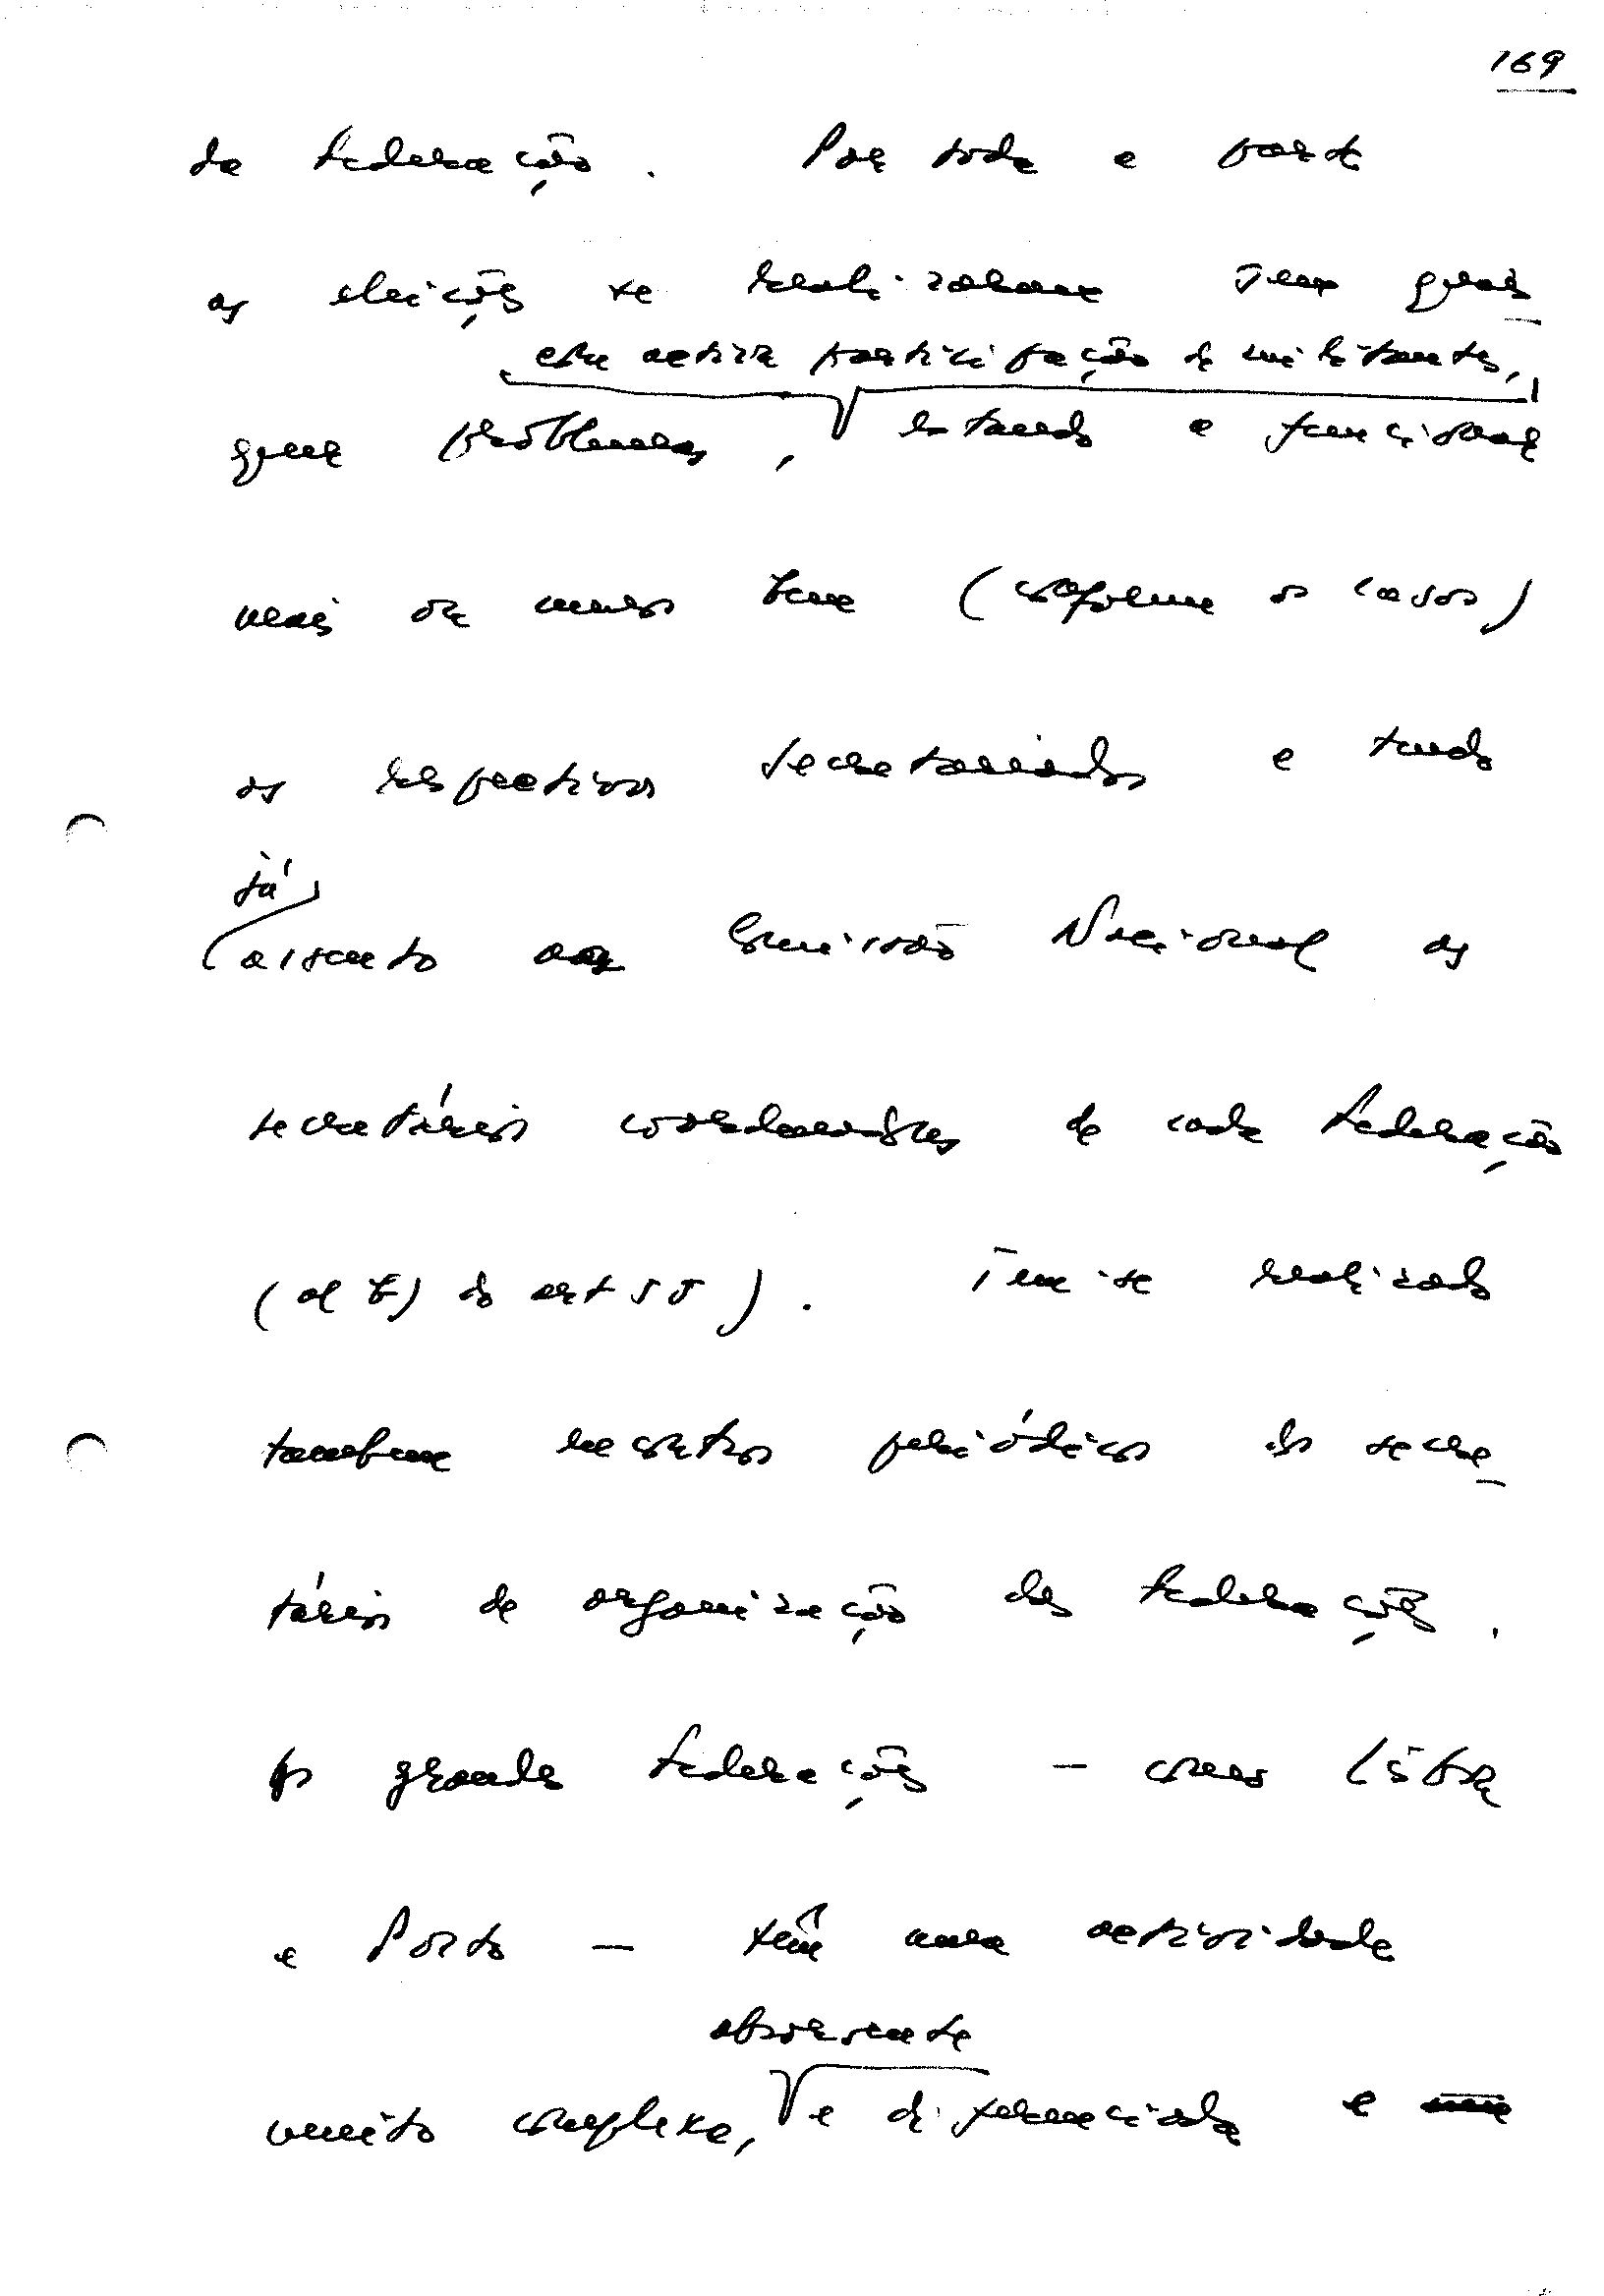 169
da Federação. Por toda a parte
as eleições se realizaram sem quais-
com activa participação de militantes,
quer problemas, estando a funcionar
mais ou menos bem (conforme os casos)
os respectivos Secretariados e tendo
já
assento na Comissão Nacional os
secretários coordenadores de cada Federação
(al b) do art 55). Tem-se realizado
também encontros periódicos dos secre-
tários de organização das Federações.
As grandes Federações - como Lisboa
e Porto - têm uma actividade
absorvente
muito complexa, e diferenciada e